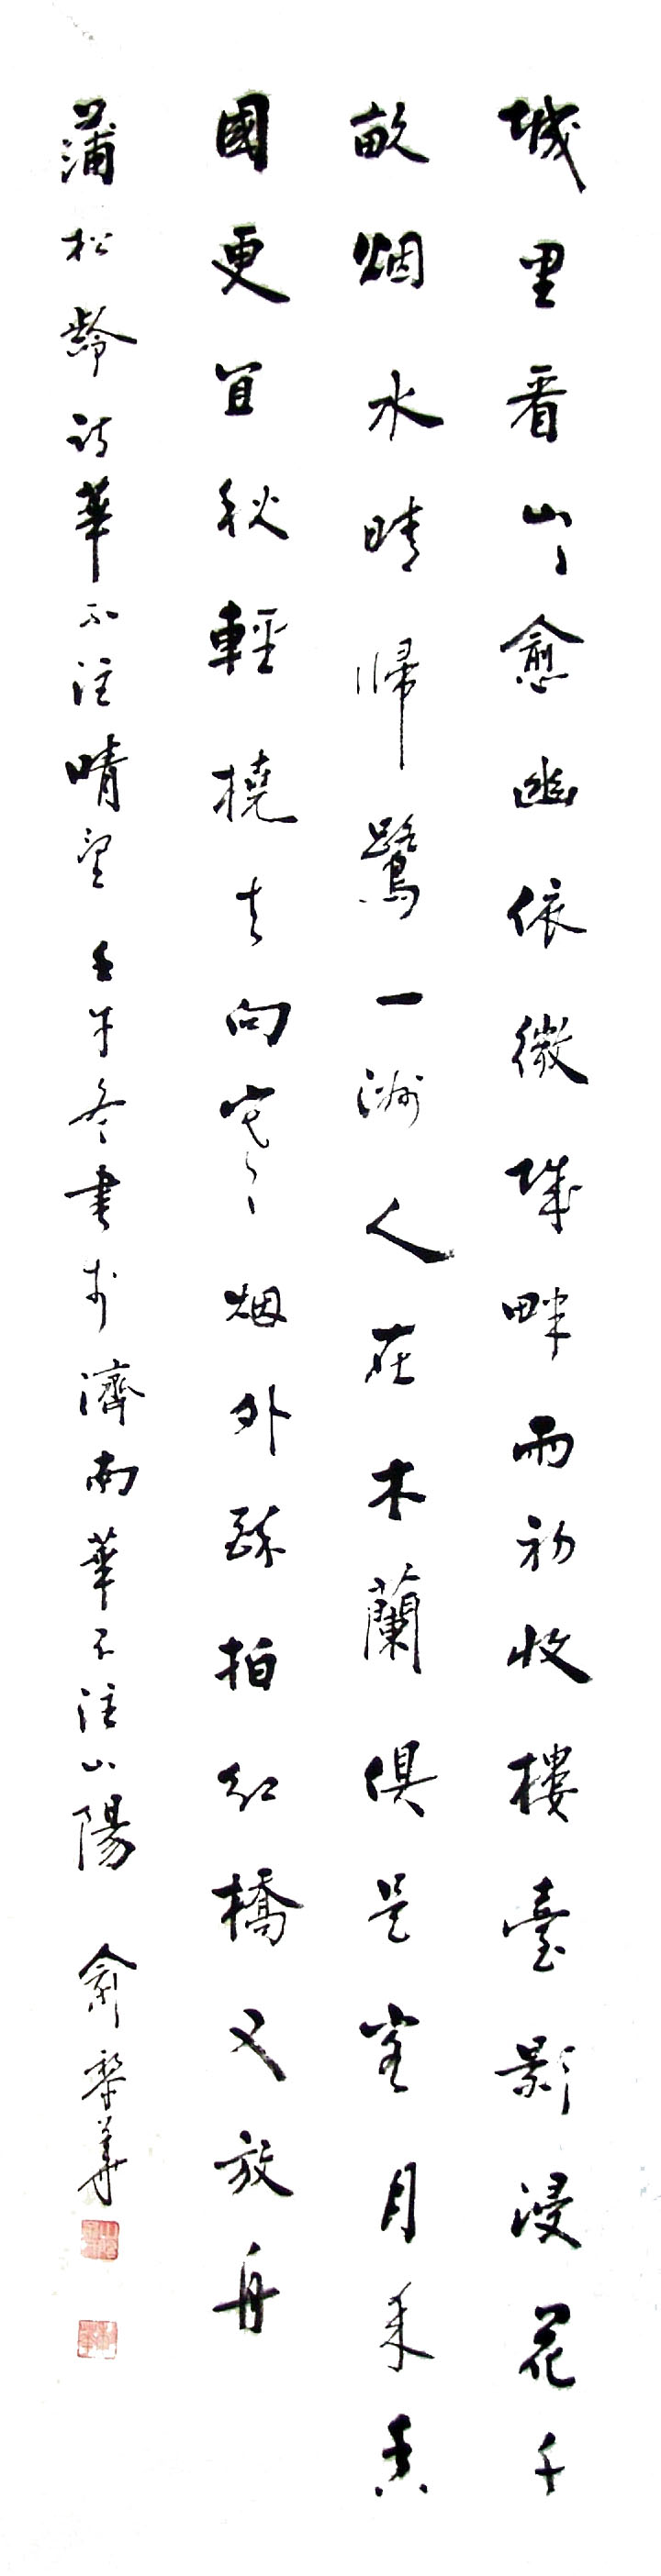 城里看山〻愈幽依微城畔雨初收樓臺影浸花千
畝烟水晴歸鷺一洲人在木蘭俱是客月來香
國更宜秋輕橈去向寒烟外疏拍紅橋又放舟
蒲松齡詩華不注晴望 壬午冬書於濟南華不注山陽 俞黎華